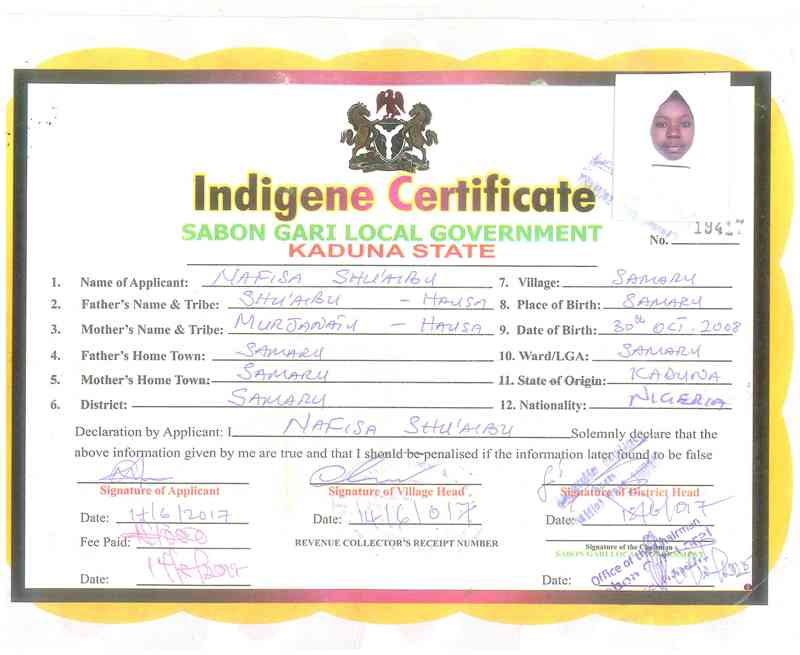 Indigene Certificate
SABON GARI LOCAL GOVERNMENT
KADUNA STATE
No. 19417
1. Name of Applicant: NAFISA SHU'AIBU
2. Father's Name & Tribe: SHU'AIBU - HAUSA
3. Mother's Name & Tribe: MURJANATU - HAUSA
4. Father's Home Town: SAMARU
5. Mother's Home Town: SAMARU
6. District: SAMARU
7. Village: SAMARU
8. Place of Birth: SAMARU
9. Date of Birth: 30th OCT. 2008
10. Ward/LGA: SAMARU
11. State of Origin: KADUNA
12. Nationality: NIGERIA
Declaration by Applicant: I NAFISA SHU'AIBU Solemnly declare that the
above information given by me are true and that I should be penalised if the information later found to be false
Signature of Applicant
Date: 14/6/2017
Fee Paid:
Date:
Signature of Village Head
Date: 14/6/017
REVENUE COLLECTOR'S RECEIPT NUMBER
Signature of District Head
Date: 15/6/017
Signature of the Chairman
SABON GARI LOCAL GOVERNMENT
Office of the Chairman
Date: